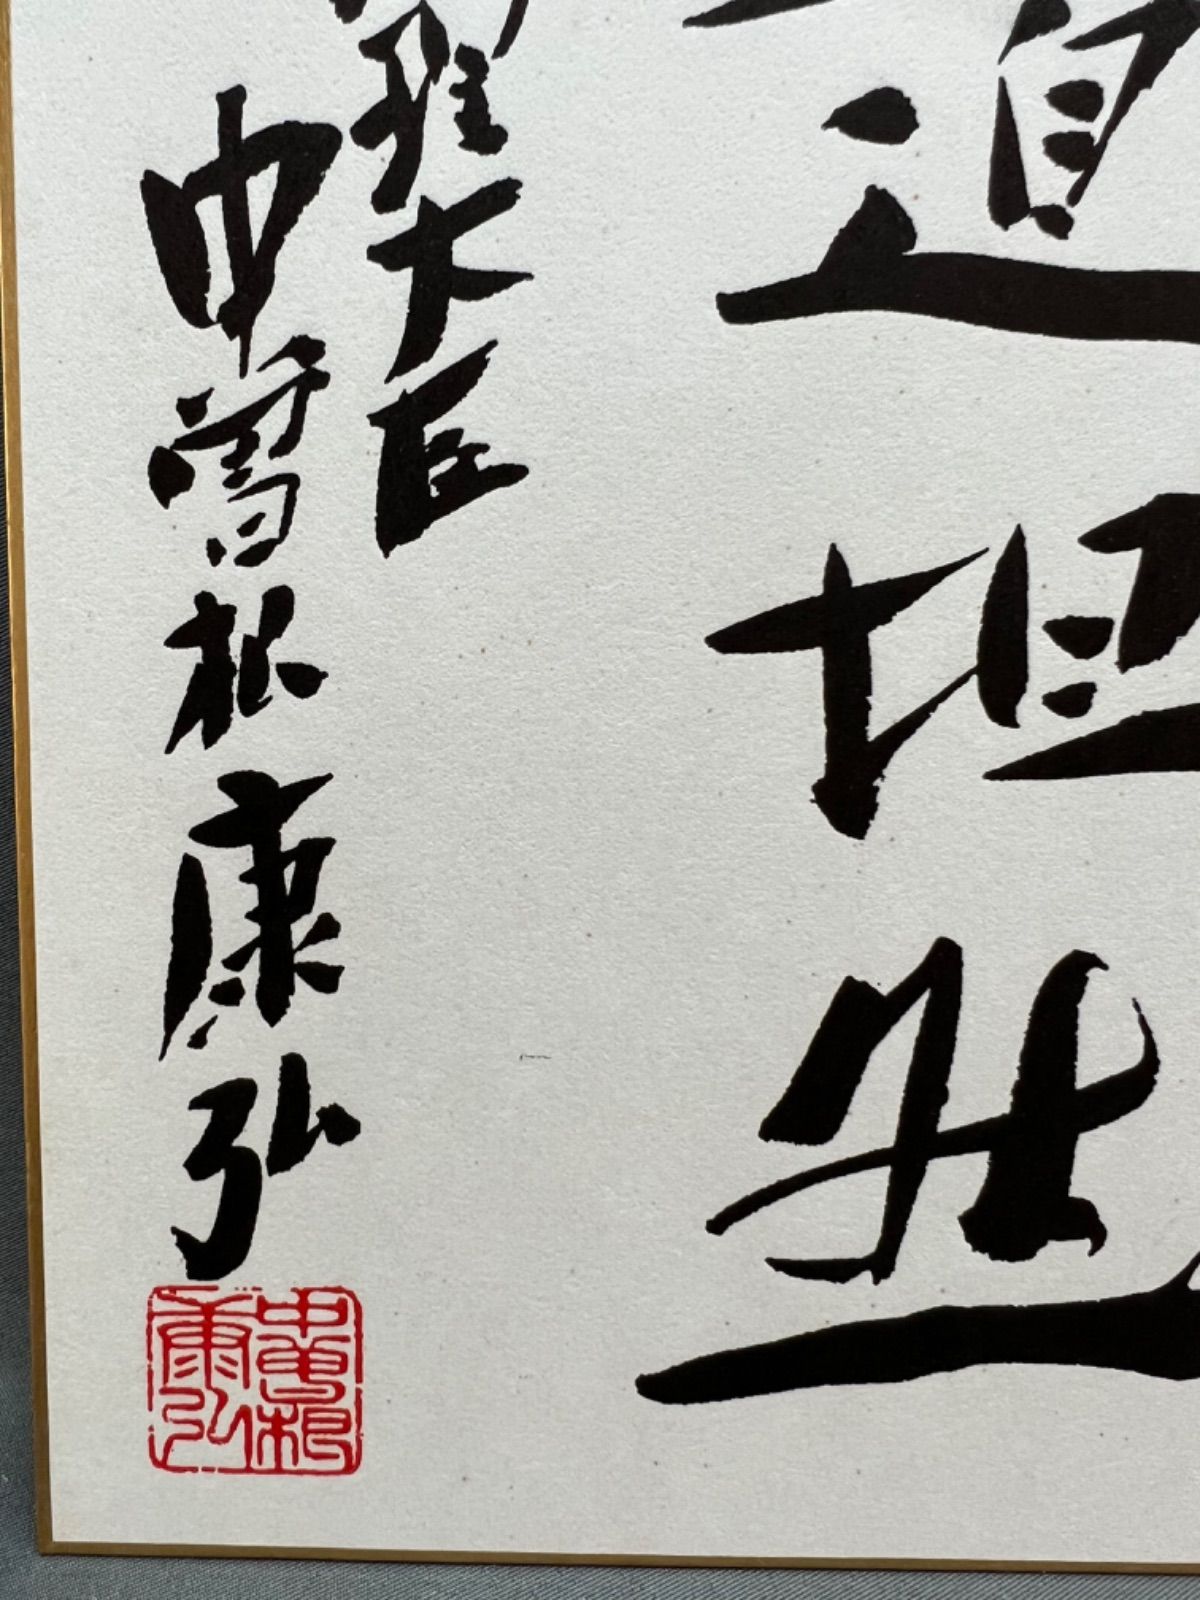 道坦然
理大臣
中曽根康弘
中曽根
康弘